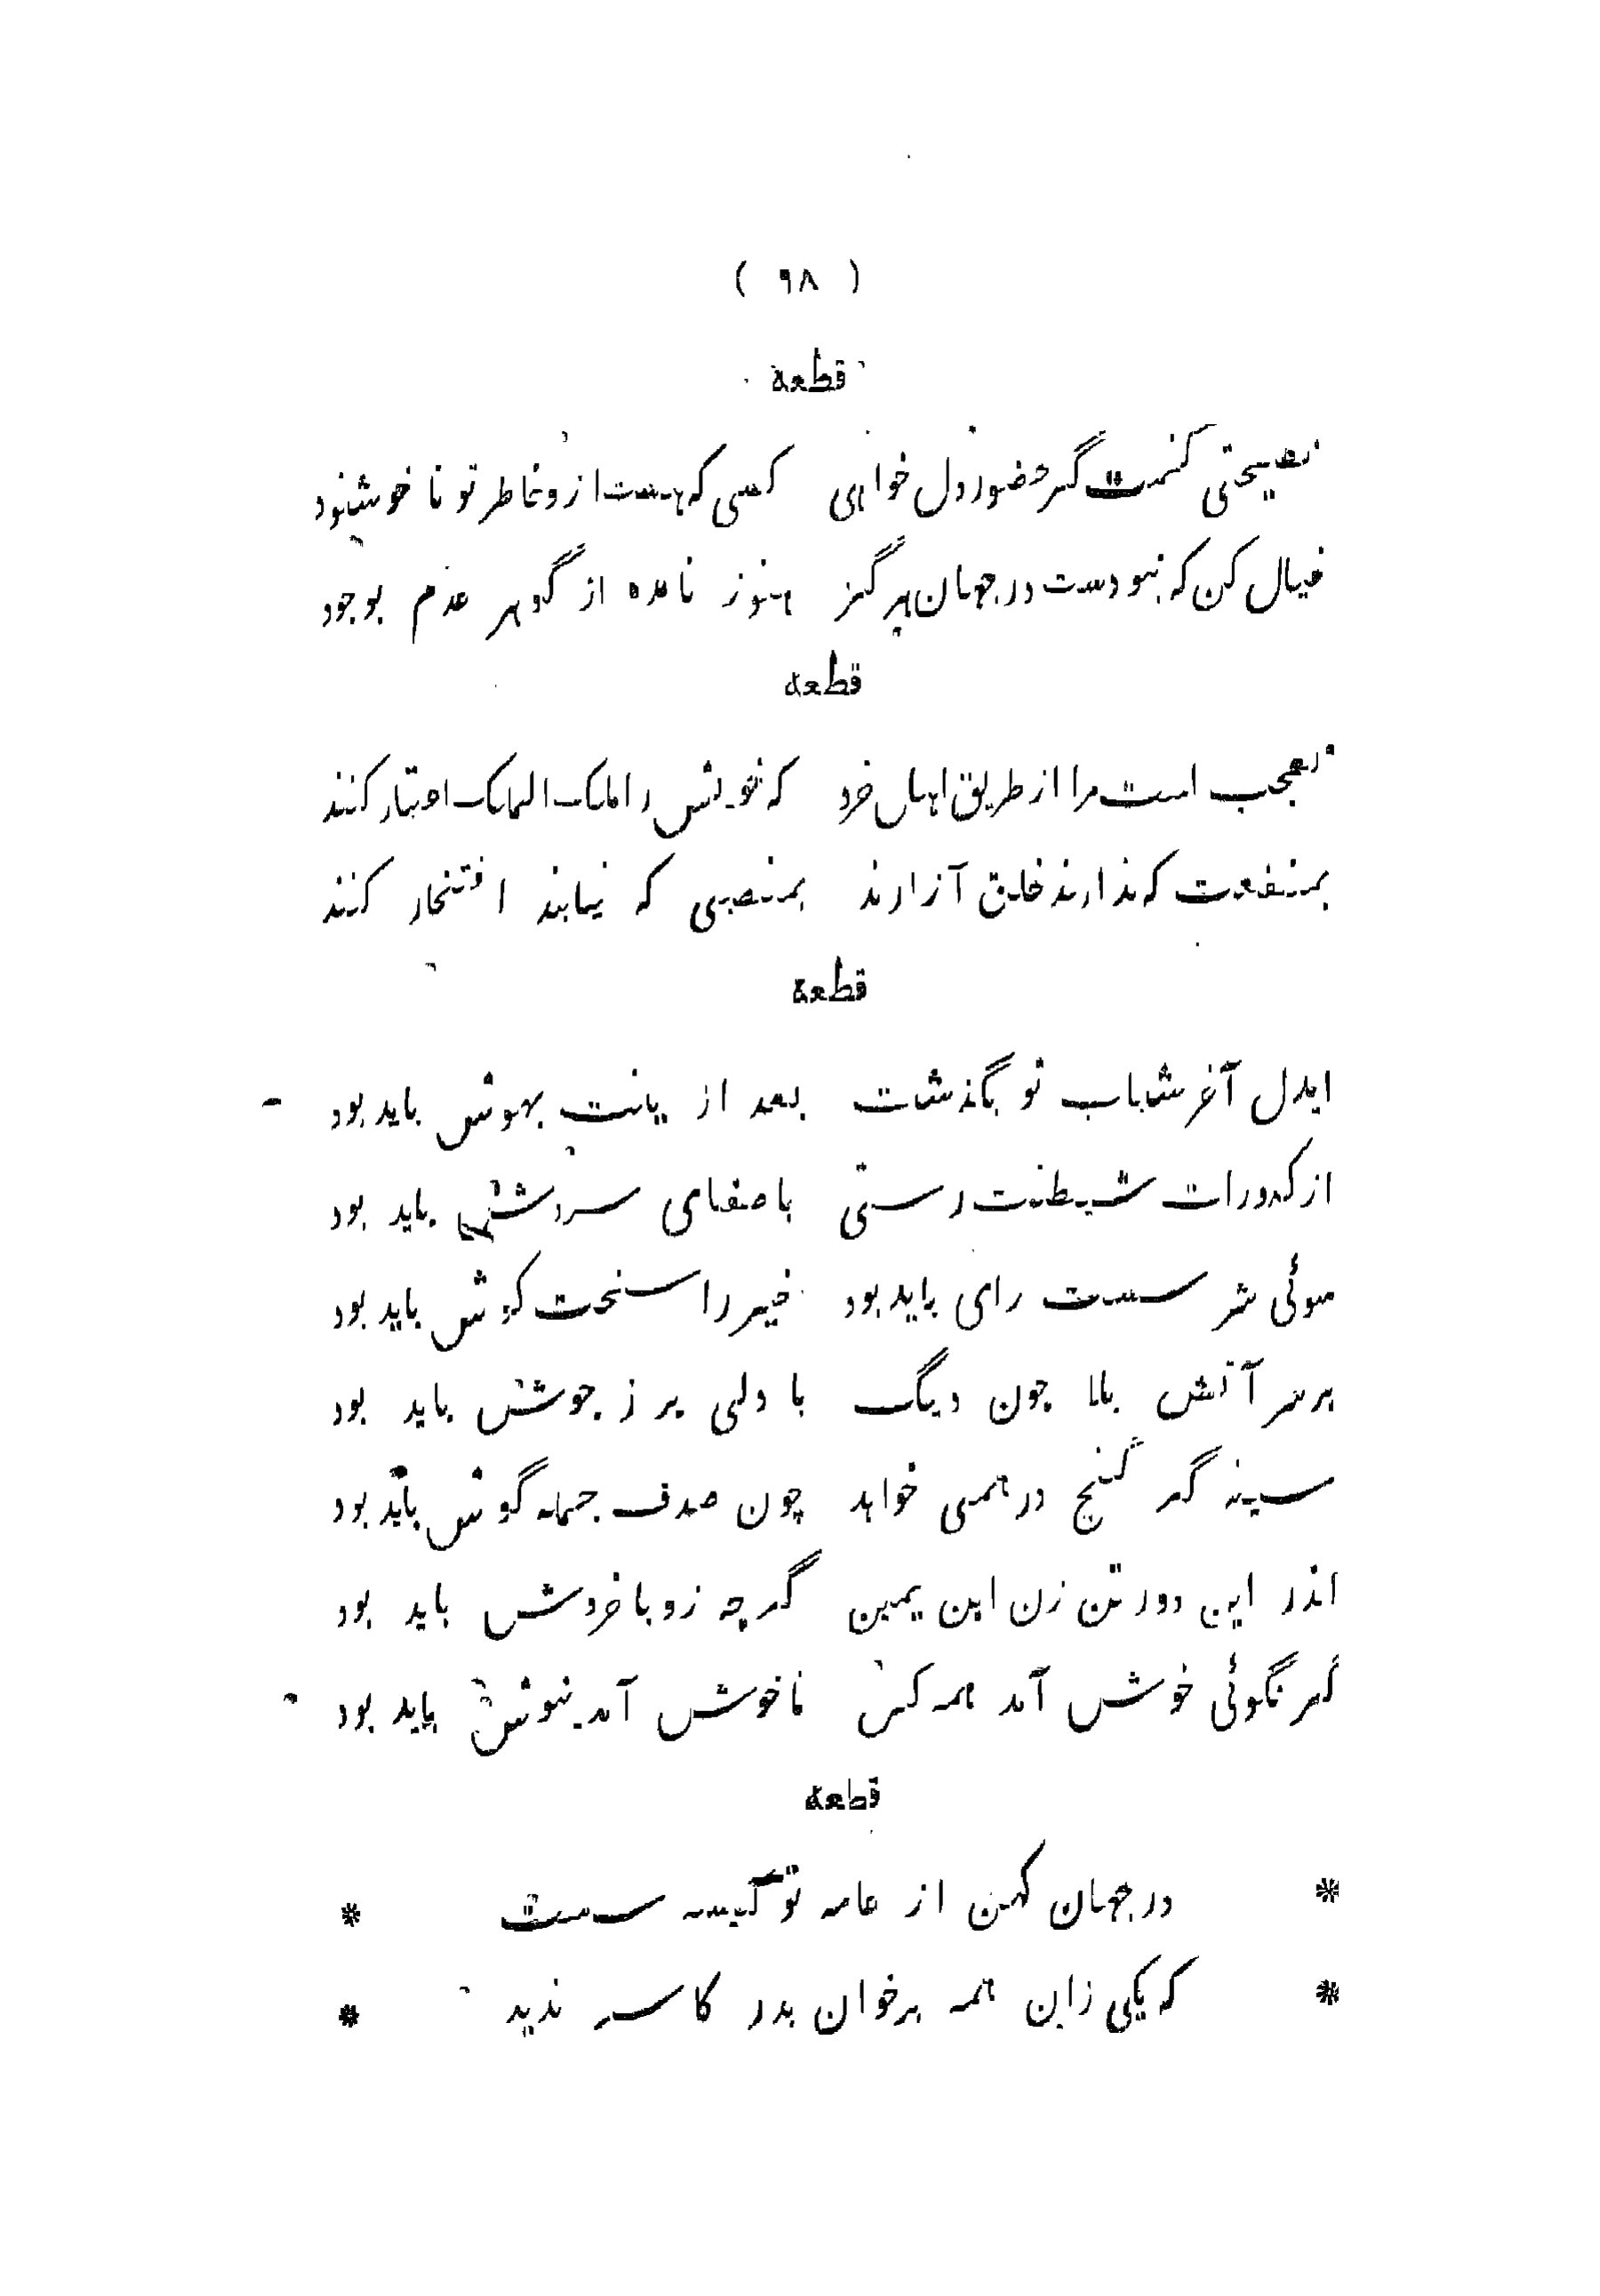 ( ۹۸ )
قطعه
نصیحتی کنمت گر حضور دل خواهی کسی که هست ازو خاطر تو نا خوشنود
خیال کن که نبودست در جهان هرگز هنوز نامده از گوهر عدم بوجود
قطعه
تعجب است مرا از طریق اهل خرد که خویش را ملک الملک اعتبار کنند
بمنفعت که ندارند خلق آزارند بمنصبی که نیابند افتخار کنند
قطعه
ایدل آخر شباب تو بگذشت بعد از ینت بهوش باید بود
از کدورات شیطنت رستی با صفای سروش باید بود
سوئی شر سست رای باید بود خیر را سخت کوش باید بود
بر سر آتش بلا چون دیگ با دلی پر ز جوش باید بود
سینه گر گنج در همی خواهد چون صدف جمله گوش باید بود
اندر این دور تن زن ابن یمین گرچه زو با خروش باید بود
گر نگوئی خوش آمد همه کس ناخوش آمد نیوش باید بود
قطعه
* در جهان کهن از عامه نو کیسه ست *
* که یکی زان همه بر خوان پدر کاسه ندید *